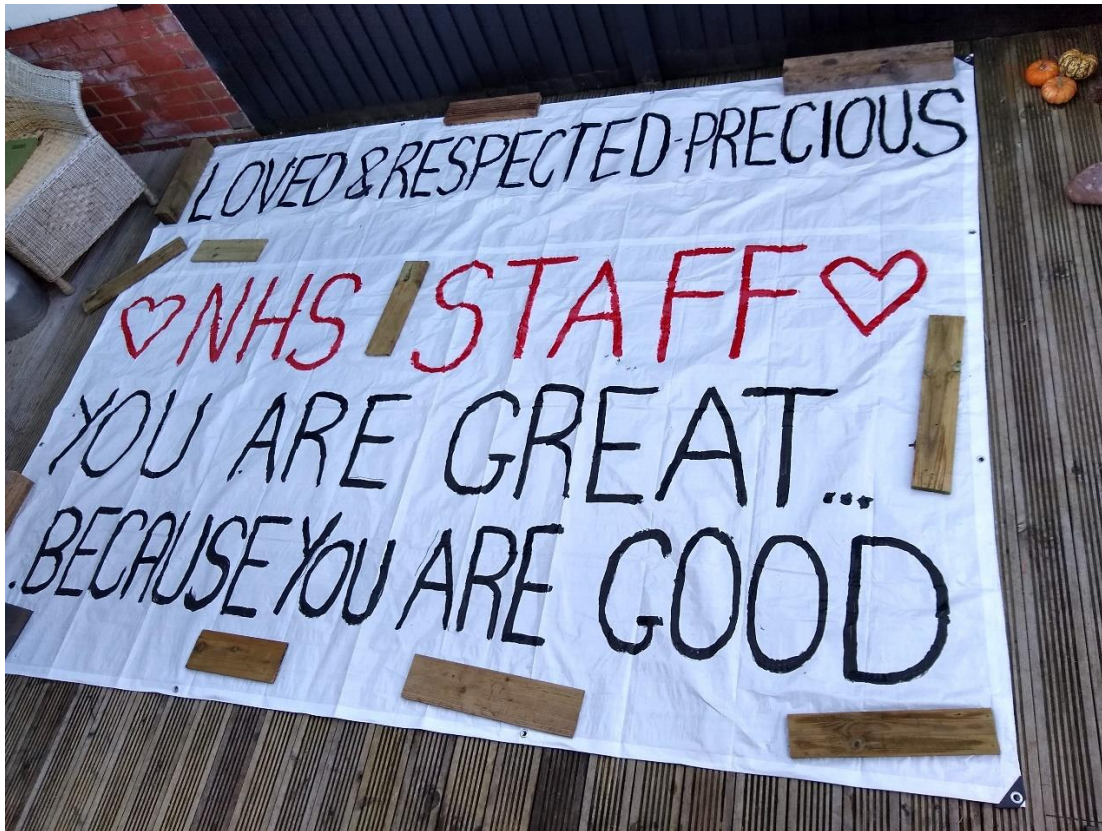 LOVED & RESPECTED-PRECIOUS
♡ NHS STAFF ♡
YOU ARE GREAT...
.BECAUSE YOU ARE GOOD